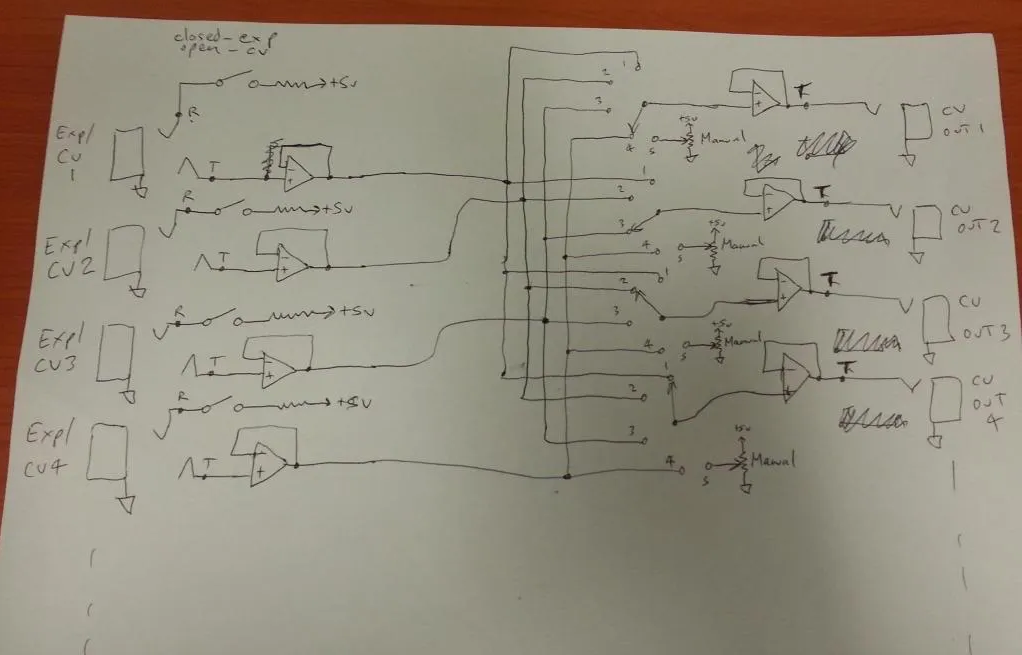 closed-exp
open-cv
+5v
R
Exp/
CV
1
T
R
+5v
Exp/
CV2
T
R
+5v
Exp/
CV3
T
R
+5v
Exp/
CV4
T
1
2
3
4
5
+5v
Manual
T
CV
OUT 1
1
2
3
4
5
+5v
Manual
T
CV
OUT2
1
2
3
4
5
+5v
Manual
T
CV
OUT 3
1
2
3
4
5
+5v
Manual
T
CV
OUT
4